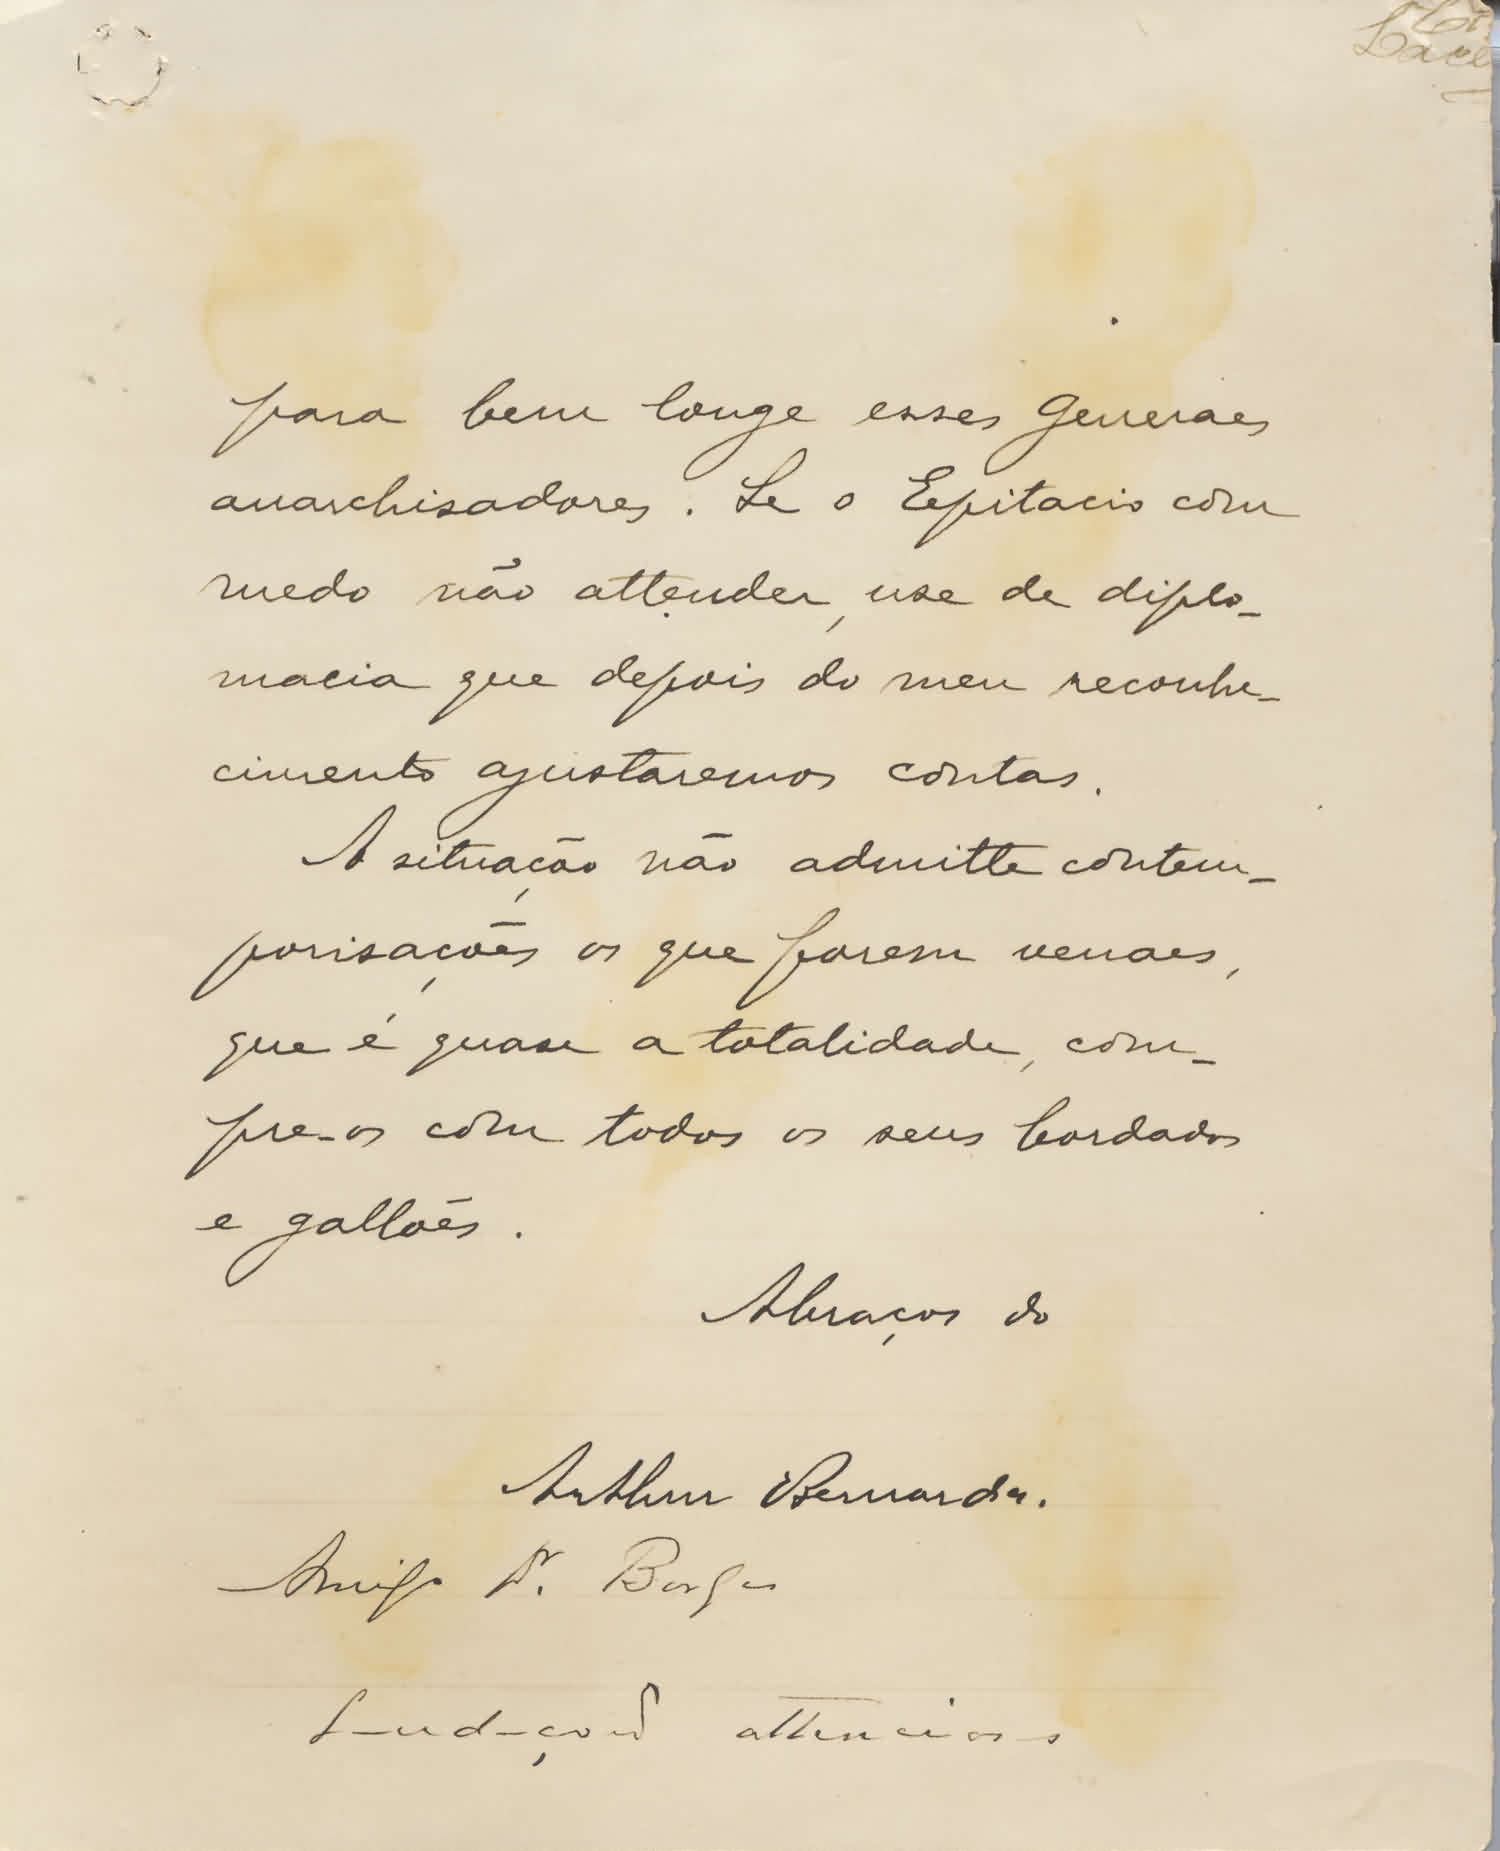 para bem longe esses generaes
anarchisadores. Se o Epitacio com
medo não attender, use de diplo-
macia que depois do meu reconhe-
cimento ajustaremos contas.
A situação não admitte contem-
porisações os que forem venaes,
que é quase a totalidade, com-
pre-os com todos os seus bordados
e gallões.
Abraços do
Arthur Bernardes.
Amigo Dr. Borges
Saudações attenciosas